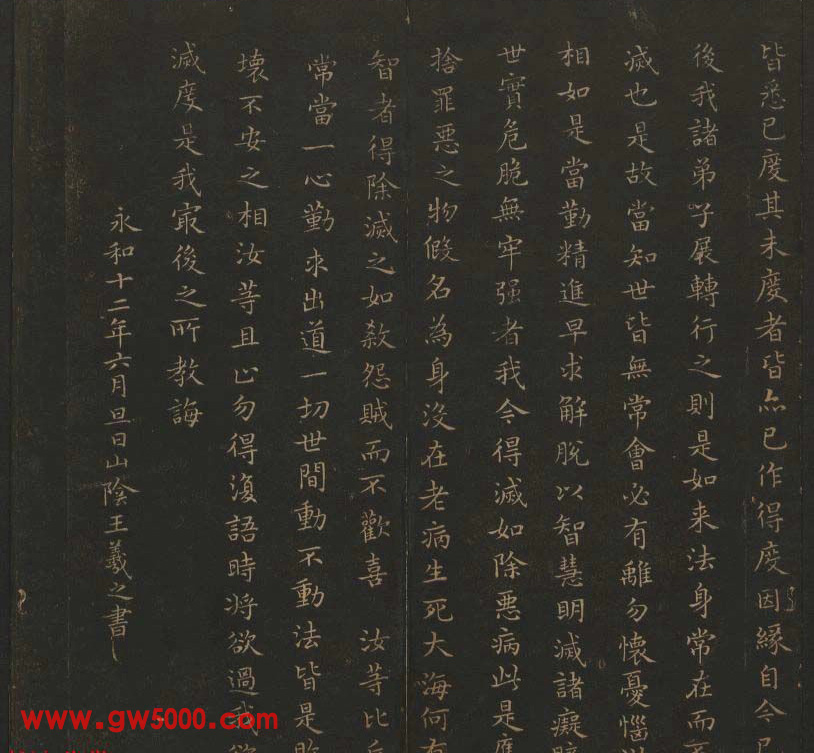 皆悉已度其未度者皆亦已作得度因緣自今已
後我諸弟子展轉行之則是如来法身常在而不
滅也是故當知世皆無常會必有離勿懷憂惱
相如是當勤精進早求解脫以智慧明滅諸癡
世實危脆無牢强者我今得滅如除惡病此是應
捨罪惡之物假名為身没在老病生死大海何有
智者得除滅之如殺怨賊而不歡喜 汝等比丘
常當一心勤求出道一切世間動不動法皆是敗
壞不安之相汝等且止勿得復語時将欲過我欲
滅度是我冣後之所教誨
永和十二年六月旦日山陰王羲之書
www.gw5000.com